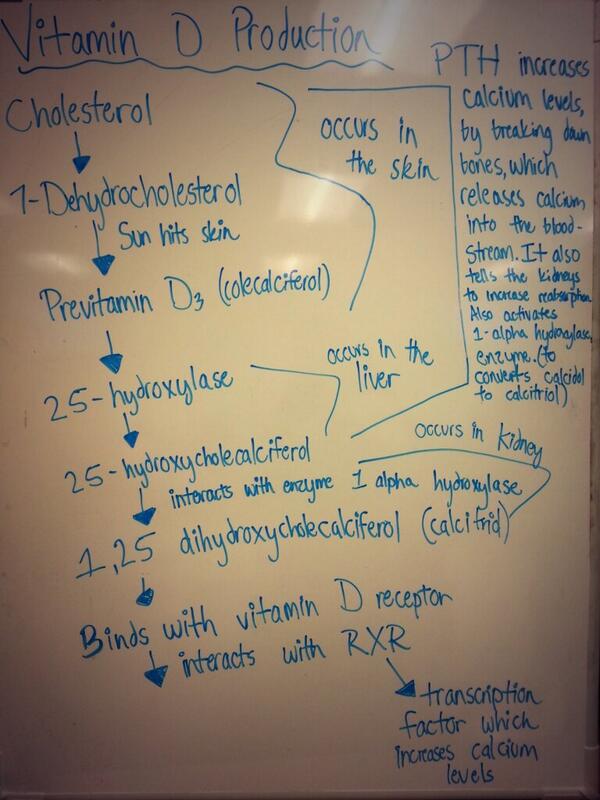 Vitamin D Production
Cholesterol
7-Dehydrocholesterol
Sun hits skin
Previtamin D3 (colecalciferol)
occurs in
the skin
25-hydroxylase
occurs in the
liver
25-hydroxycholecalciferol
interacts with enzyme 1 alpha hydroxylase
occurs in kidney
1,25 dihydroxycholecalciferol (calcitriol)
Binds with vitamin D receptor
interacts with RXR
transcription
factor which
increases calcium
levels
PTH increases
calcium levels,
by breaking down
bones, which
releases calcium
into the blood-
stream. It also
tells the kidneys
to increase reabsorption.
Also activates
1-alpha hydroxylase,
enzyme. (to
converts calcidol
to calcitriol)